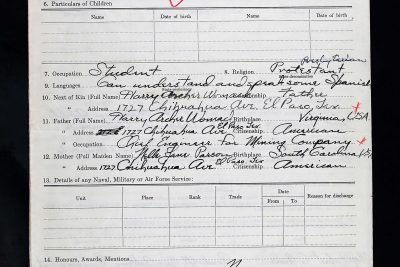 6. Particulars of Children
Name Date of birth Name Date of birth
Presbyterian
7. Occupation Student 8. Religion Protestant
9. Languages Can understand and speak some Spanish
10. Next of Kin (Full Name) Harry Womack Relationship Father
" Address 1727 Chihuahua Ave. El Paso, Tex.
11. Father (Full Name) Harry Womack Birthplace Virginia, USA
" Address 1727 Chihuahua Ave El Paso Tex Citizenship American
" Occupation Chief Engineer For Mining Company
12. Mother (Full Maiden Name) Jane Parson Birthplace South Carolina USA
" Address 1727 Chihuahua Ave. El Paso Tex Citizenship American
13. Details of any Naval, Military or Air Force Service:
Unit Place Nature Trade Date Reason for discharge
From To
14. Honours, Awards, Mentions